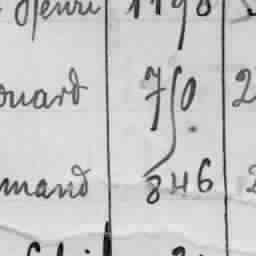 Henri 1198
ouard 750. 2
mand 846 2